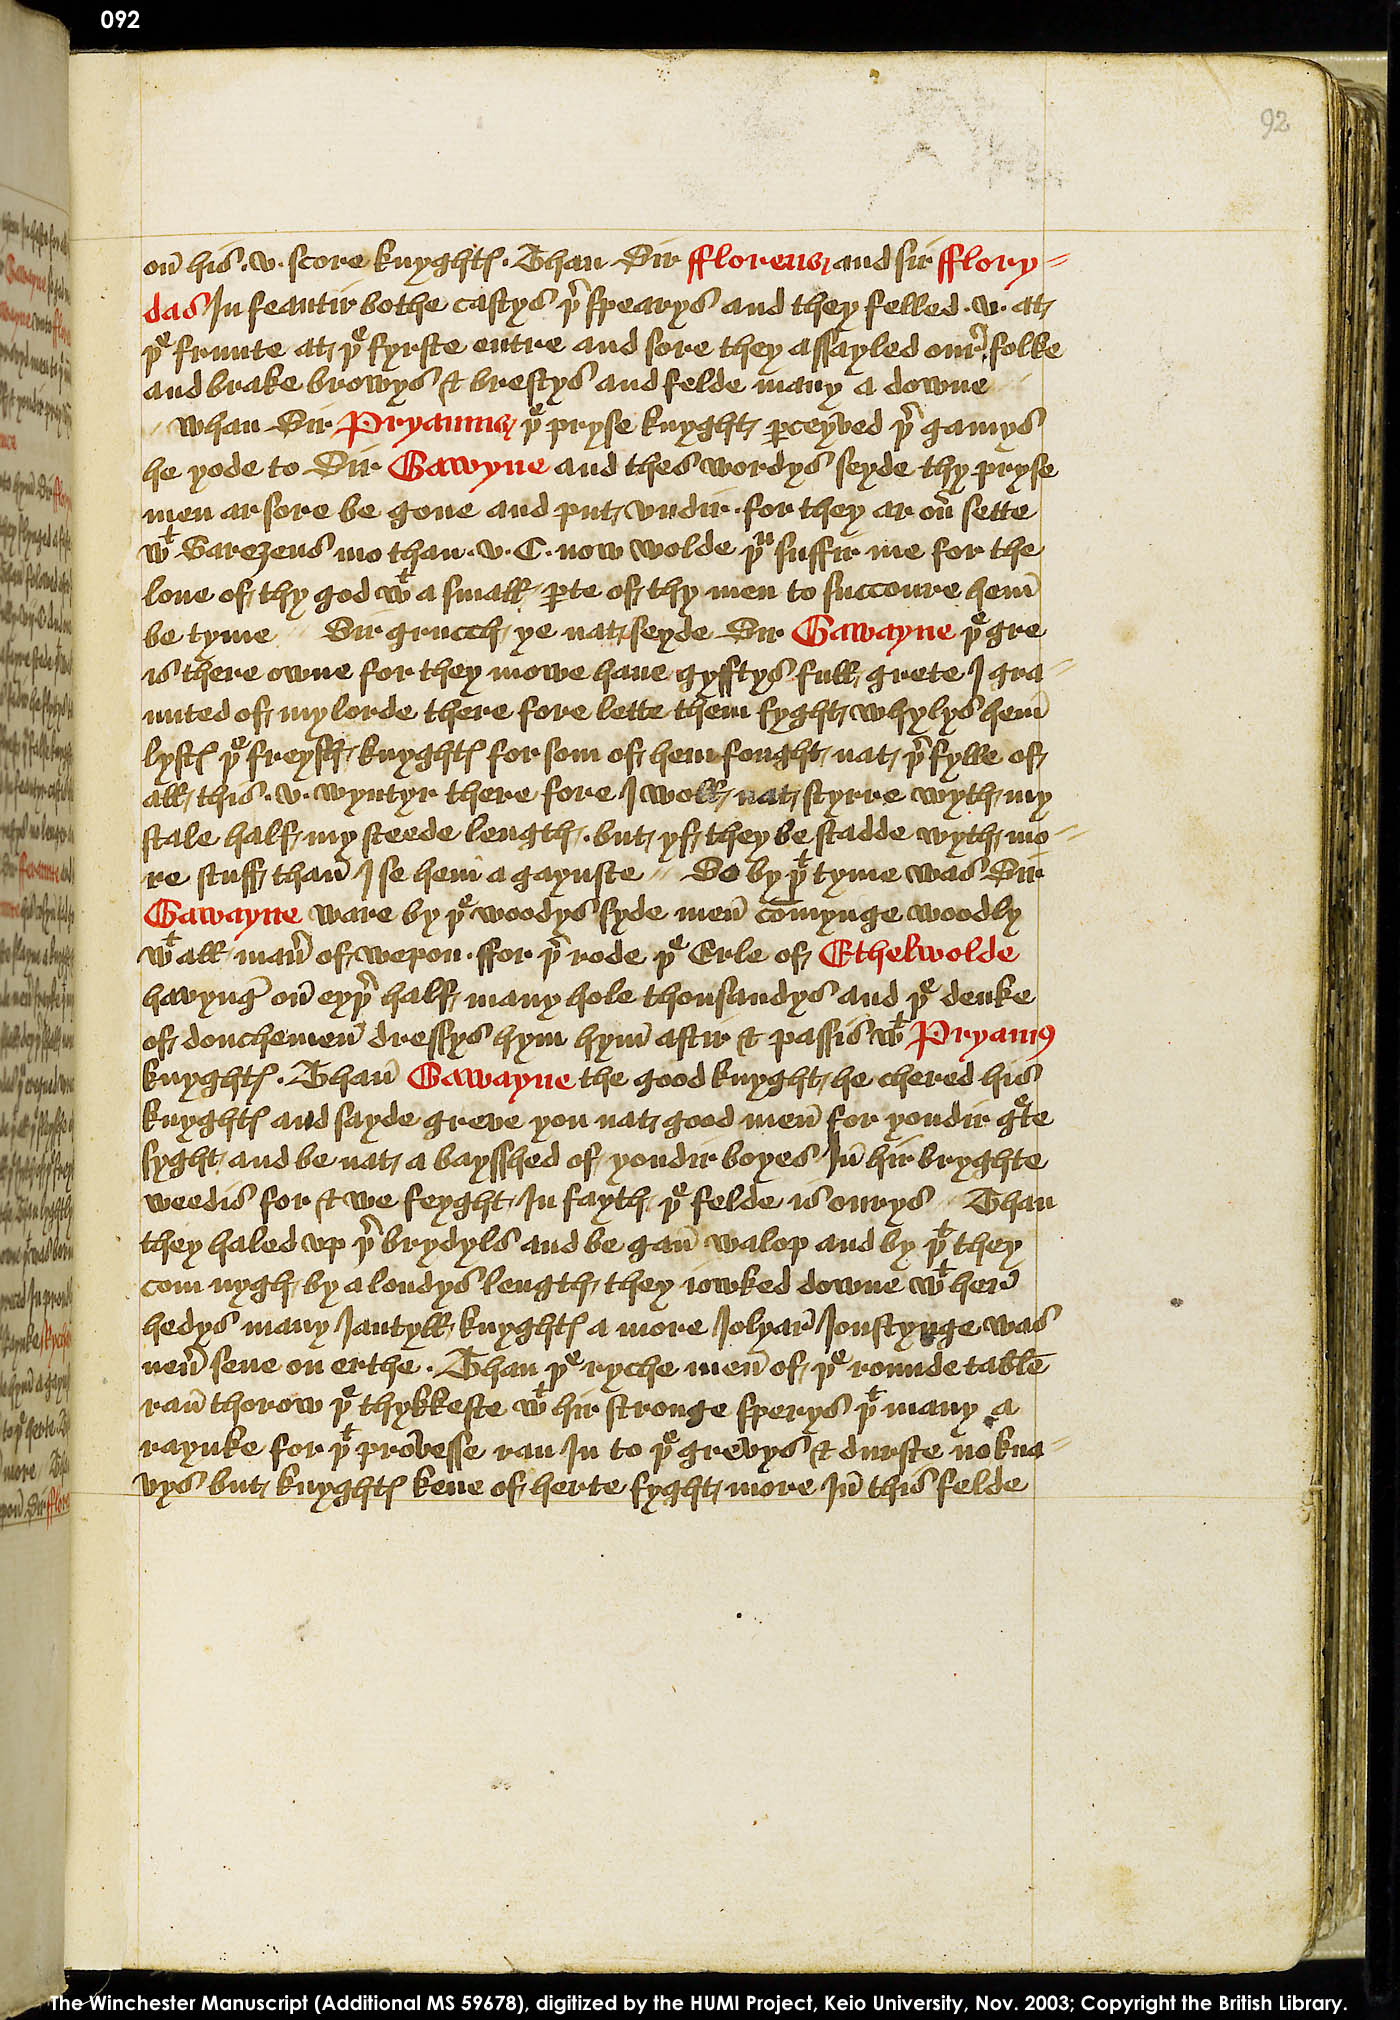 092
92
on̄ his .v. score knyghtꝭ. Than Sir fflorens and sir fflory=
das In feautir bothe castys þr̄ spearys and they felled .v. at
þe frunte at þe fyrste entre and sore they assayled our̄ folke
and brake browys & brestys and felde many a downe
whan Sir Pryamus þe pryse knyght ꝑceyved þr̄ gamys
he yode to Sir Gawyne and thes wordys seyde thy pryse
men ar sore be gone and put vndir. for they ar on̄ sette
wt Sarezens mo than .v. C. now wolde þu suffir me for the
loue of thy god wt a small ꝑte of thy men to succoure hem̄
be tyme Sir grucch ye nat seyde Sir Gawayne þe gre
is there owne for they mowe haue gyfftys full grete I gra=
unted of my lorde there fore lette them fyght whylys hem̄
lystꝭ þe freyssh knyghtꝭ for som of hem fought nat þr̄ fylle of
all this .v. wyntyr there fore I woll nat styrre wyth my
stale half my steede length. but yf they be stadde wyth mo=
re stuff than̄ I se hem̄ a gaynste So by þt tyme was Sir
Gawayne ware by þe woodys syde men̄ com̄ynge woodly
wt all man̄ of wepon. ffor þr̄ rode þe Erle of Ethelwolde
havynḡ on̄ eyþr̄ half many hole thousandys and þe deuke
of douchemen̄ dressys hym hym̄ aftir & passis wt Pryamꝰ
knyghtꝭ. Than̄ Gawayne the good knyght he chered his
knyghtꝭ and sayde greve you nat good men̄ for yondir gͤte
syght and be nat a baysshed of yondir boyes In̄ hir bryghte
weedis for & we feyght In fayth þe felde is ourys Than
they haled vp þr̄ brydyls and be gan̄ walop and by þt they
com nygh by a londys length they iowked downe wt her̄
hedys many Jantyll knyghtꝭ a more Jolyar̄ Joustynge was
neu̅ sene on erthe. Than þe ryche men̄ of þe rounde tablē
ran̄ thorow þe thykkeste wt hir stronge sperys þt many a
raynke for þt provesse ran In to þe grevys & durste no kna=
vys but knyghtꝭ kene of herte fyght more In̄ this felde
The Winchester Manuscript (Additional MS 59678), digitized by the HUMI Project, Keio University, Nov. 2003; Copyright the British Library.